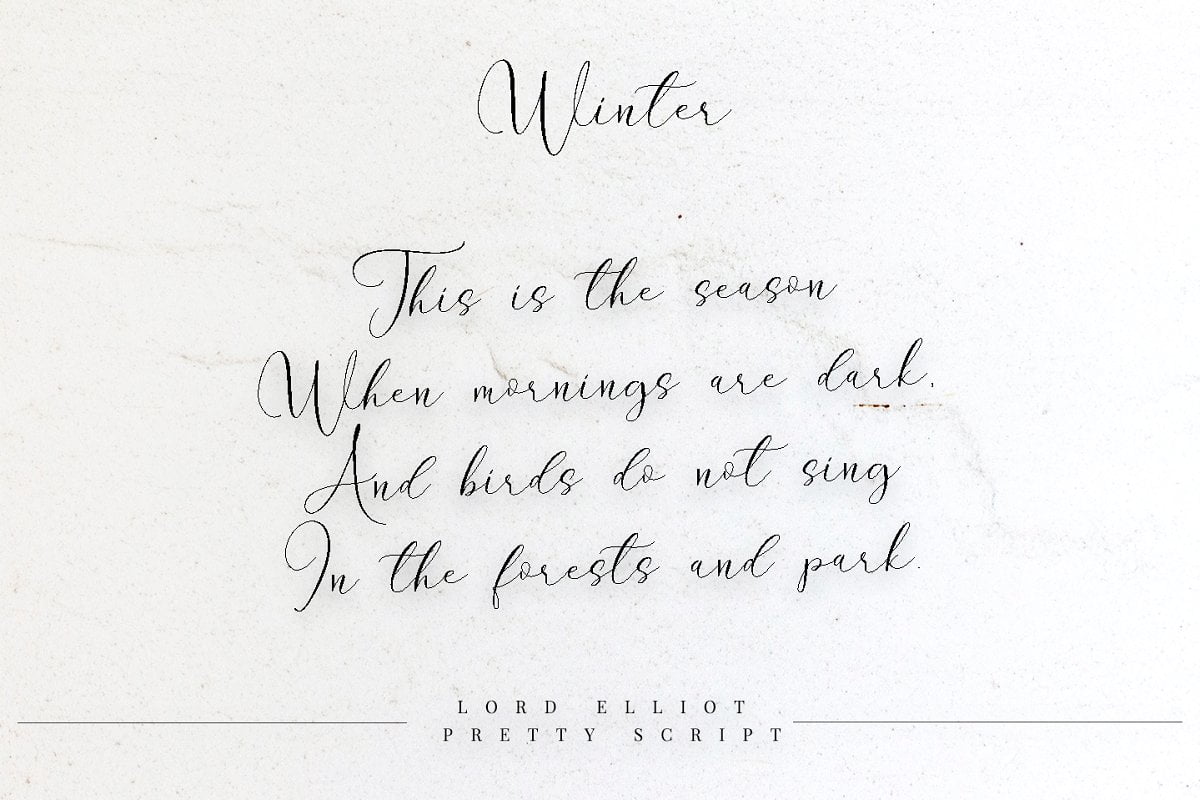 Winter
This is the season
When mornings are dark,
And birds do not sing
In the forests and park.
LORD ELLIOT
PRETTY SCRIPT